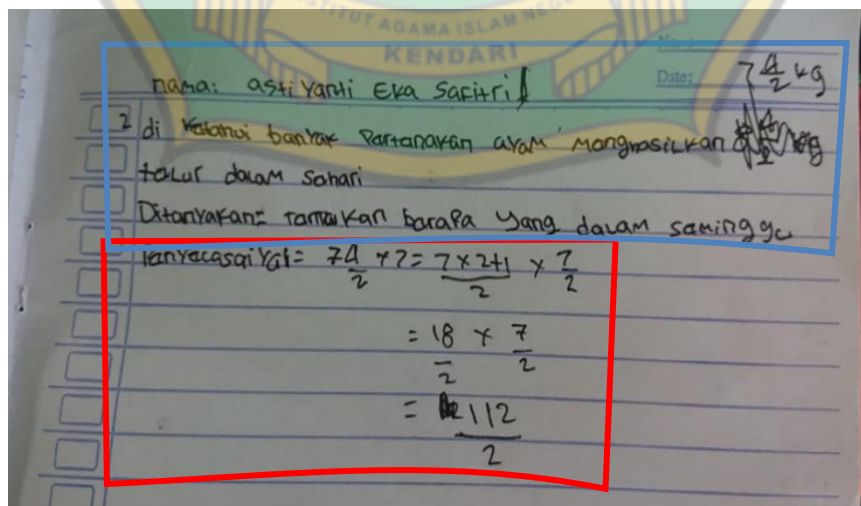 INSTITUT AGAMA ISLAM NEGERI
KENDARI
No :
Date:
nama: astiyanti Eka Safitri
7 4/2 kg
2 di Katahui banyak Partanakan ayam manghasilkan
talur dalam sahari
Ditanyakan= tamukan barapa yang dalam saminggu
Panyalasaiyah= 7 4/2 × 7 = 7×2+1/2 × 7/2
= 18/2 × 7/2
= 112/2